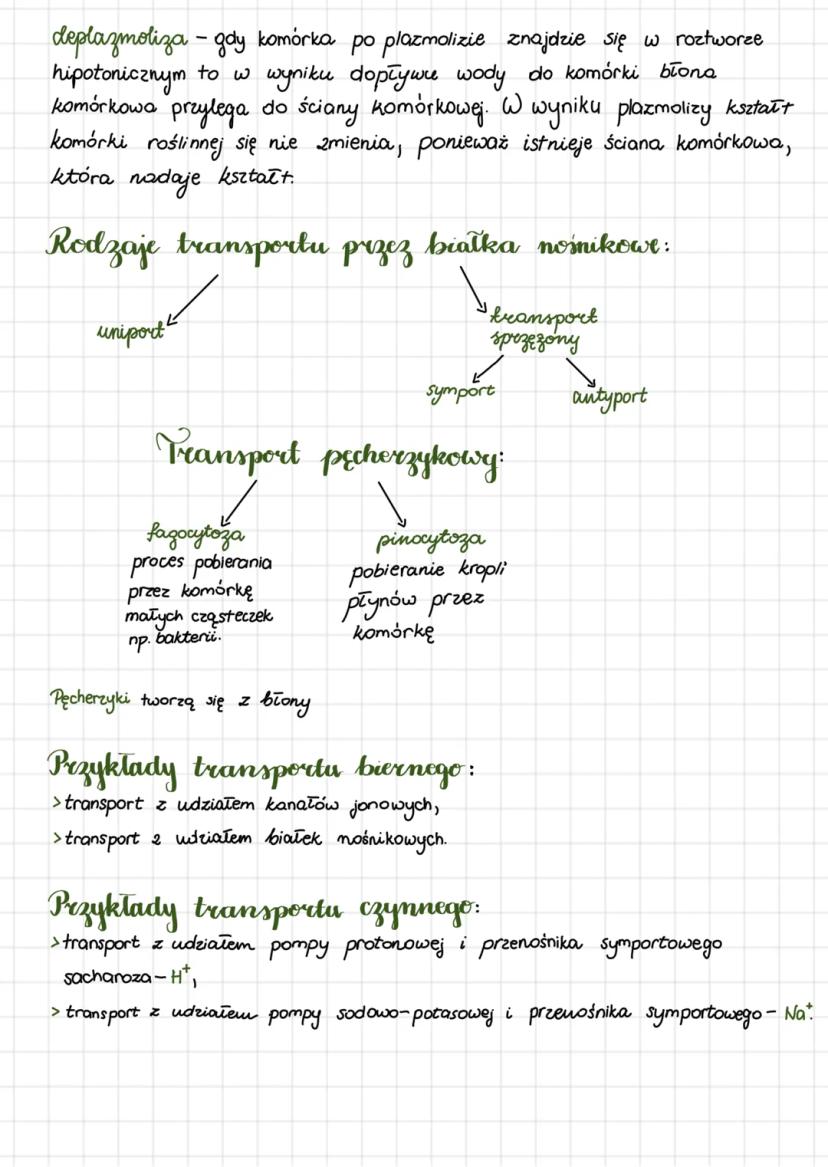 deplazmoliza – gdy komórka po plazmolizie znajdzie się w roztworze
hipotonicznym to w wyniku dopływu wody do komórki błona
komórkowa przylega do ściany komórkowej. W wyniku plazmolizy kształt
komórki roślinnej się nie zmienia, ponieważ istnieje ściana komórkowa,
która nadaje kształt.
Rodzaje transportu przez białka nośnikowe:
uniport
transport
sprzężony
symport
antyport
Transport pęcherzykowy:
fagocytoza
proces pobierania
przez komórkę
małych cząsteczek
np. bakterii.
pinocytoza
pobieranie kropli
płynów przez
komórkę
Pęcherzyki tworzą się z błony
Przykłady transportu biernego:
> transport z udziałem kanałów jonowych,
> transport z udziałem białek nośnikowych.
Przykłady transportu czynnego:
> transport z udziałem pompy protonowej i przenośnika symportowego
sacharoza – H⁺,
> transport z udziałem pompy sodowo-potasowej i przenośnika symportowego – Na⁺.